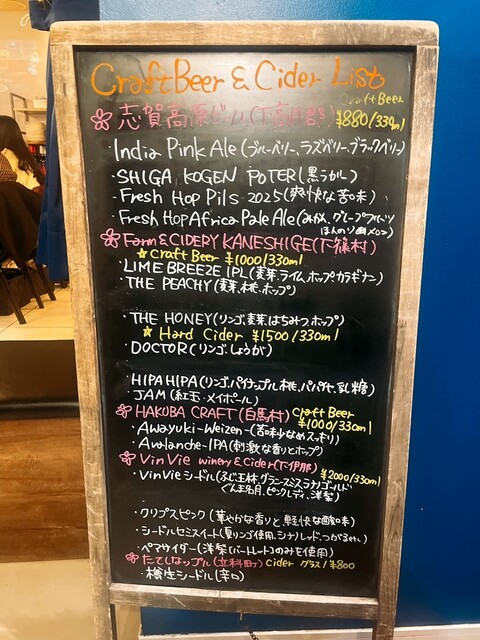 Craft Beer & Cider List
志賀高原ビール(下高井郡) Craft Beer ¥880/330ml
・India Pink Ale (ブルーベリー、ラズベリー、ブラックベリー)
・SHIGA KOGEN POTER (黒うかル)
・Fresh Hop Pils 2025 (爽快な苦味)
・Fresh Hop Africa Pale Ale (みかん、グレープフルーツ
ほんのり
Farm & CIDERY KANESHIGE (下條村)
★ Craft Beer ¥1000/330ml
・LIME BREEZE IPL (麦芽、ライム、ホップ、カラギナン)
・THE PEACHY (麦芽、桃、ホップ)
・THE HONEY (リンゴ、麦芽、はちみつ、ホップ)
★ Hard Cider ¥1500/330ml
・DOCTOR (リンゴ、しょうが)
・HIPA HIPA (リンゴ、パイナップル、桃、パパイヤ、乳糖)
・JAM (紅玉・メイポール)
HAKUBA CRAFT (白馬村) Craft Beer ¥1000/330ml
・Awayuki-Weizen- (苦味少なめスッキリ)
・Avalanche-IPA (刺激な香りとホップ)
Vin Vie winery & Cider (下伊那) ¥2000/330ml
・Vin Vie シードル (ふじ、王林、グラニースミス、シナノゴールド
ぐんま名月、ピンクレディ、洋梨)
・クリプスピンク (華やかな香りと軽快な酸味)
・シードルセミスイート (夏リンゴ使用、シナノレッド、つがるetc.)
・ペアサイダー (洋梨(バートレット)のみを使用)
たてしなップル (立科町) Cider グラス/¥800
・樽生シードル (辛口)